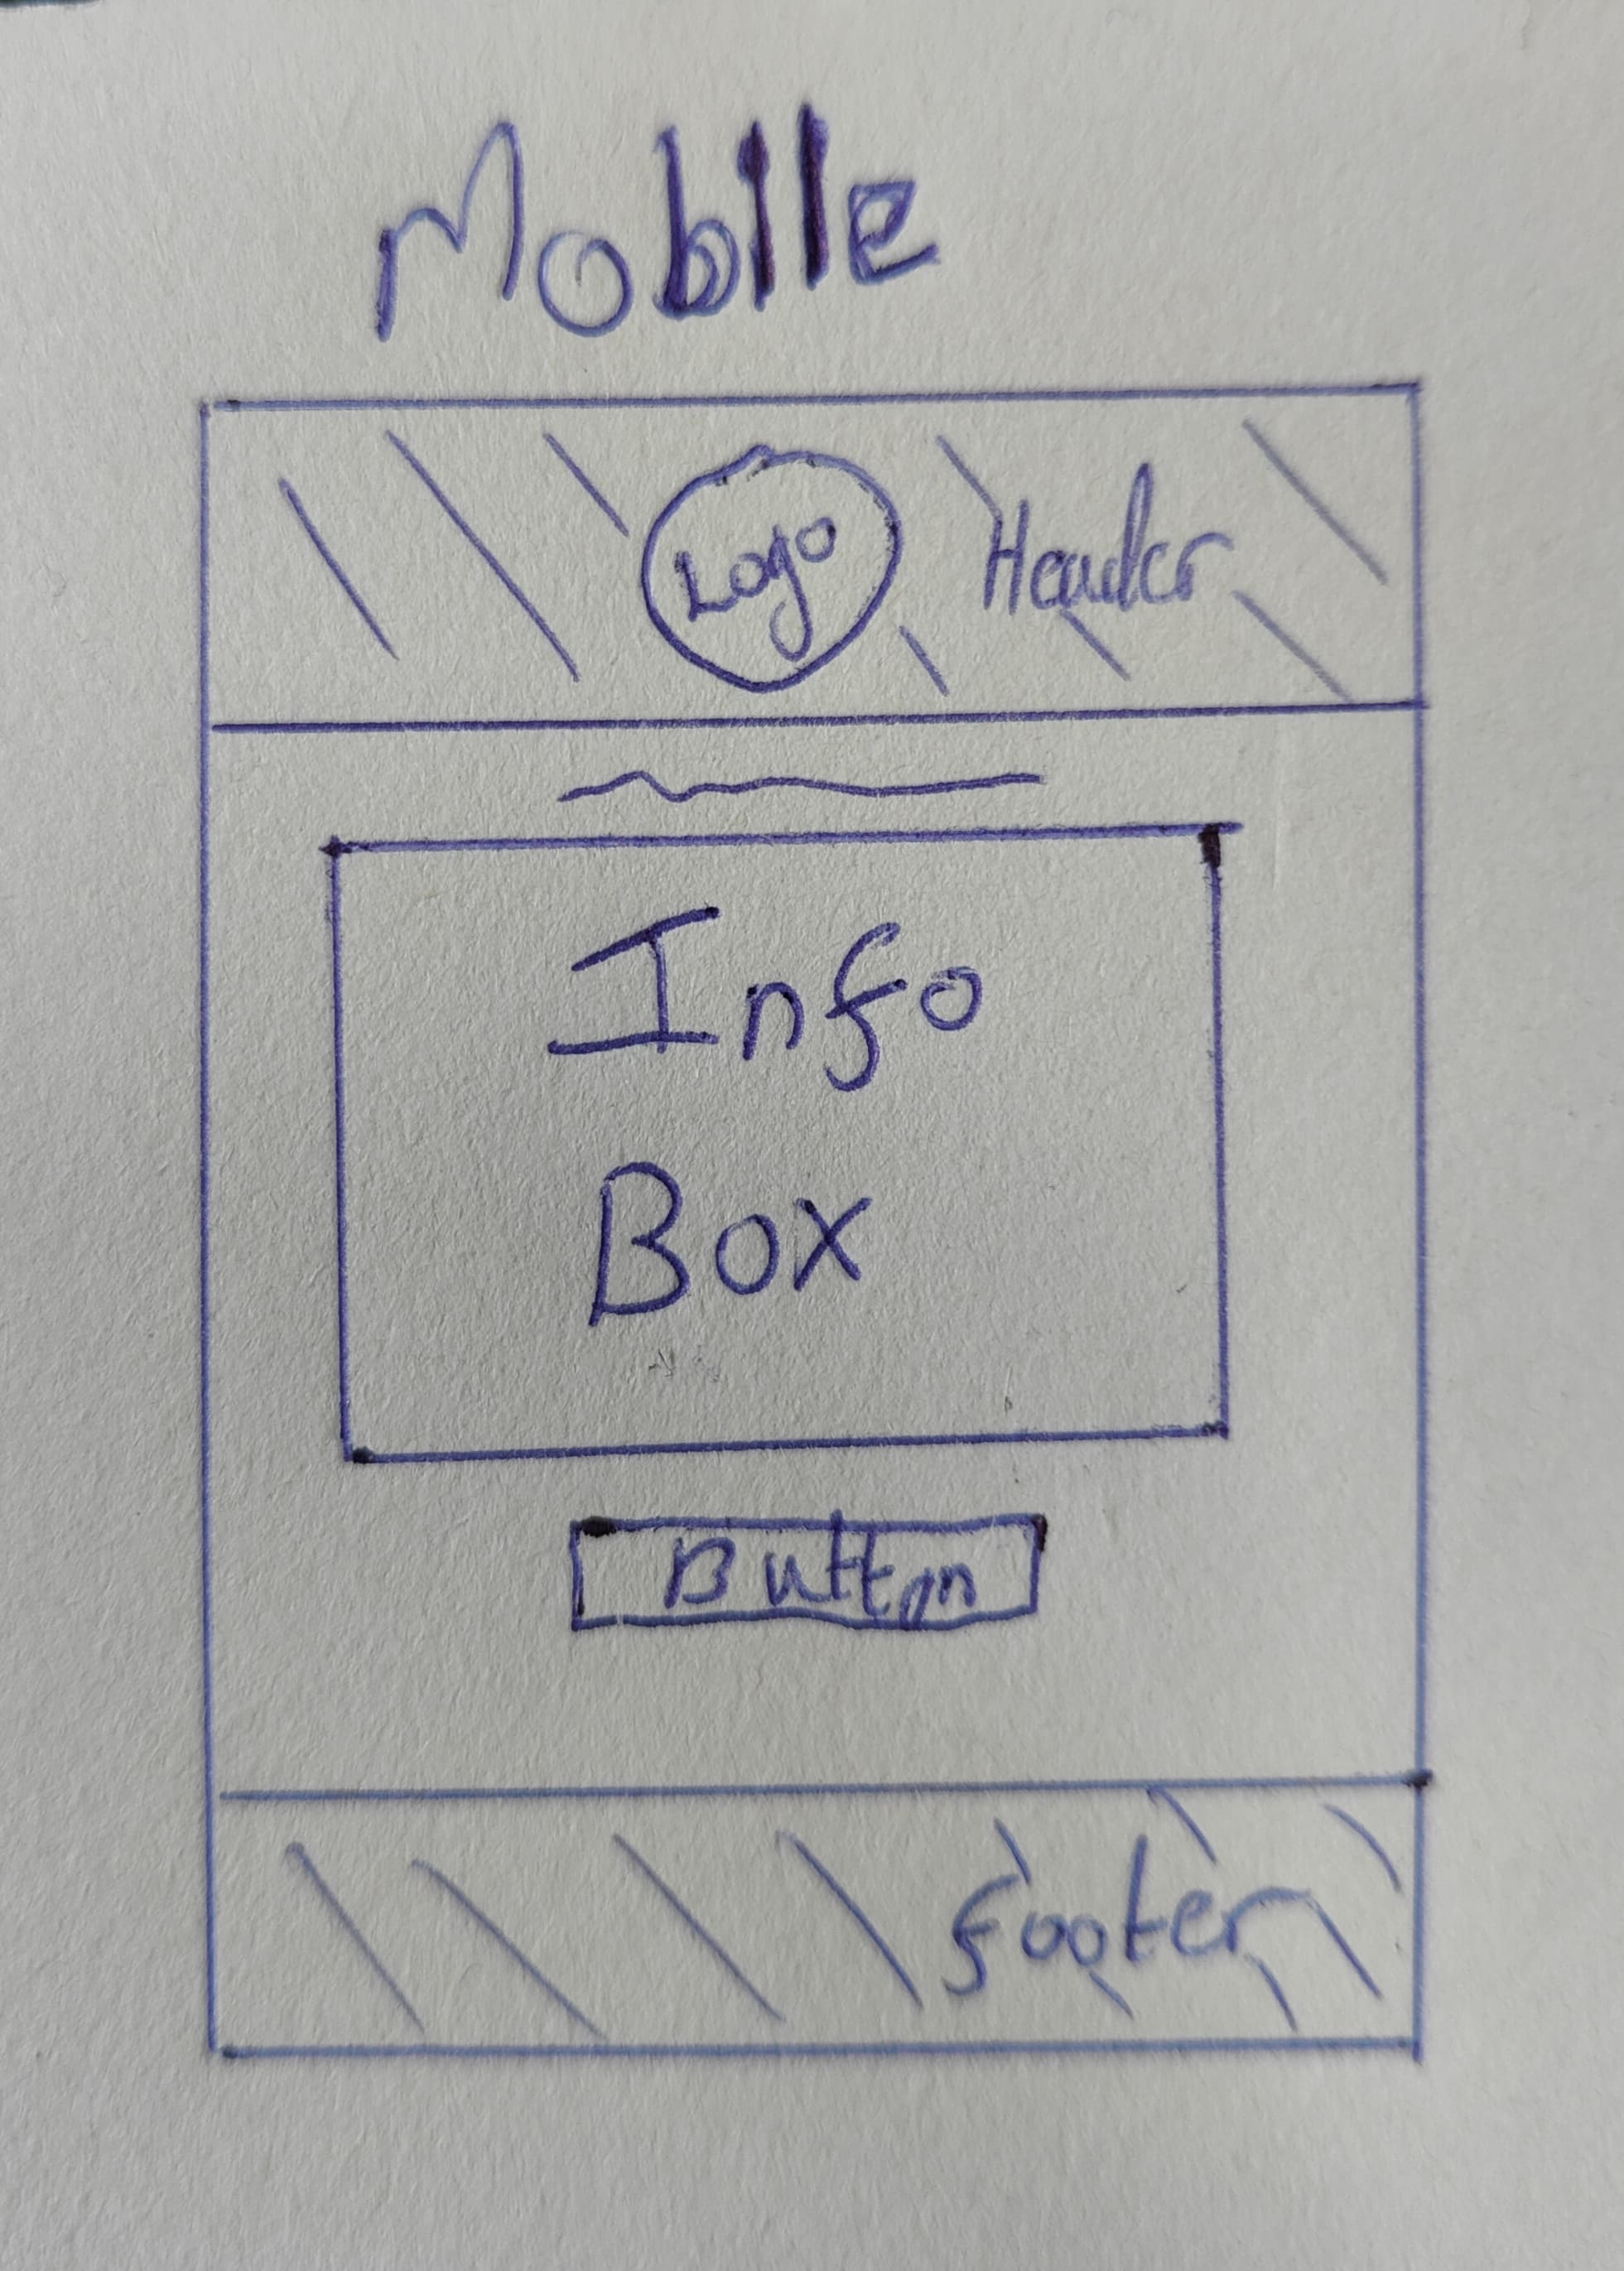 Mobile
Logo Header
Info
Box
Button
footer